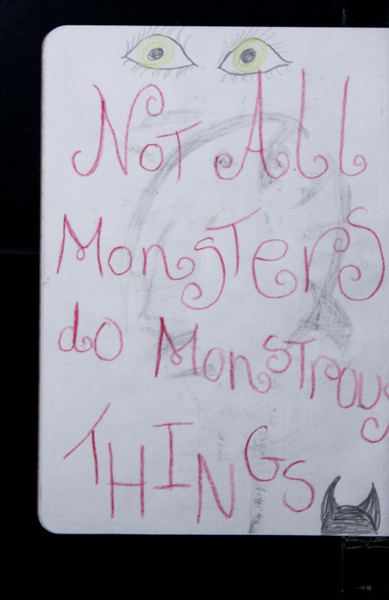 Not All
Monsters
do Monstrous
THINGS